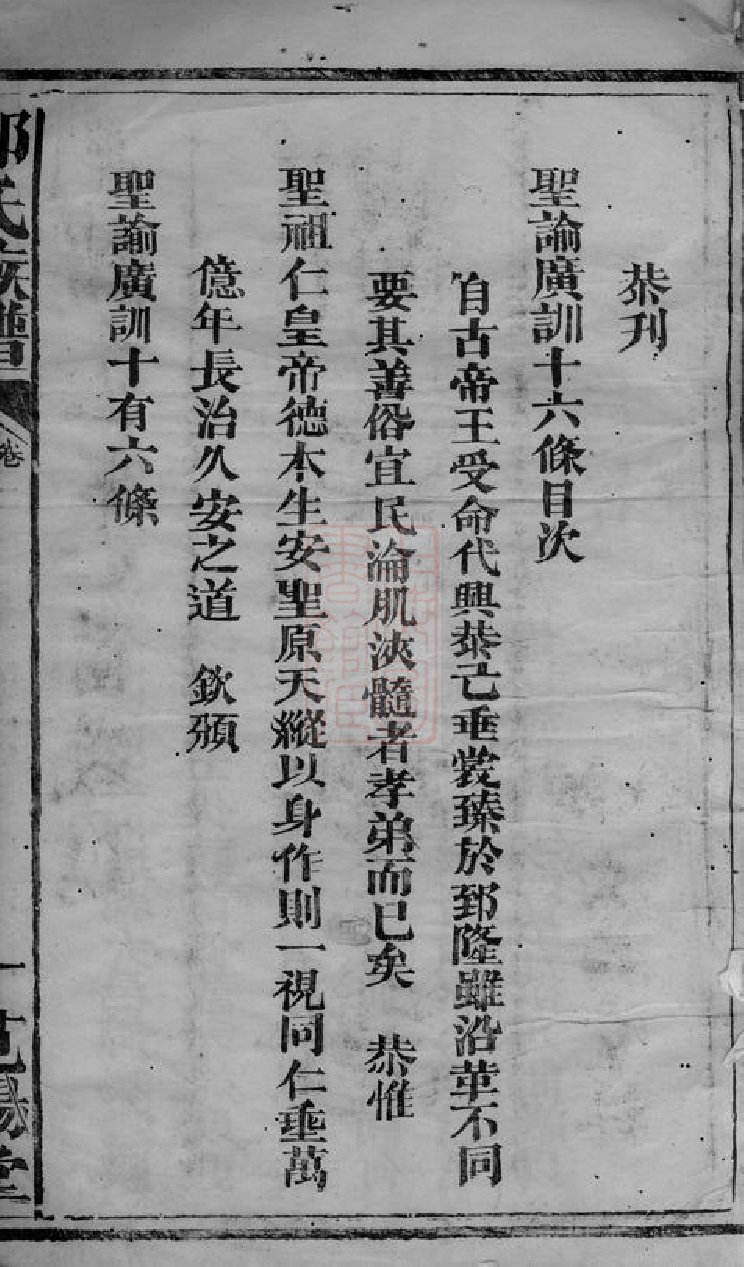 恭刊
聖諭廣訓十六條目次
自古帝王受命代興恭己垂裳臻於郅隆雖沿革不同
要其善俗宜民淪肌浹髓者孝弟而已矣 恭惟
聖祖仁皇帝德本生安聖原天縱以身作則一視同仁垂萬
億年長治久安之道 欽頒
聖諭廣訓十有六條
氏族譜
卷
一
陽堂